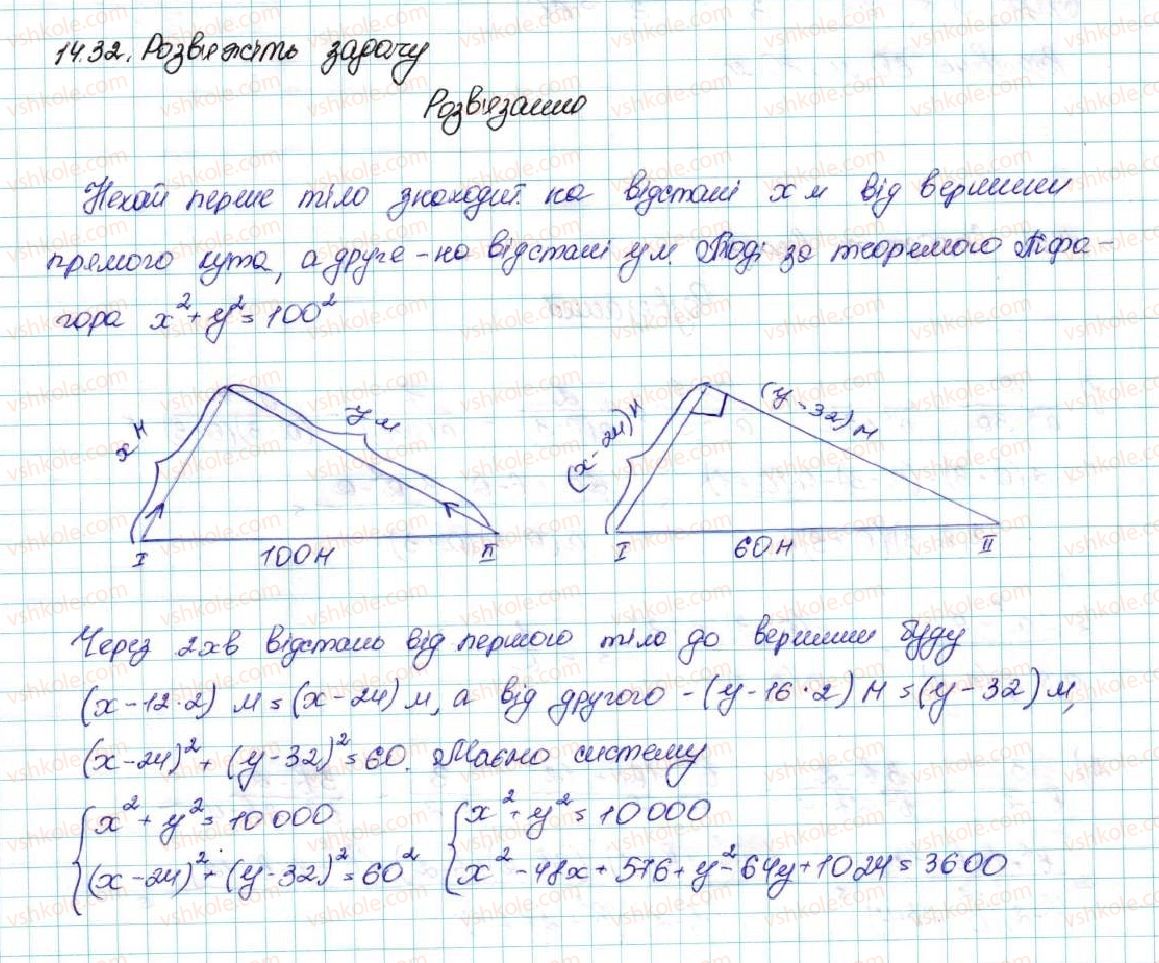 14.32. Розв'яжіть задачу
Розв'язання
Нехай перше тіло знаходит. на відстані x м від вершини
прямого кута, а друге – на відстані y м. Тоді за теоремою Піфа-
гора x² + y² = 100²
x м
y м
I
100 м
II
(x - 24) м
(y - 32) м
I
60 м
II
Через 2 хв відстань від першого тіло до вершини буду
(x - 12·2) м = (x - 24) м, а від другого – (y - 16·2) м = (y - 32) м,
(x - 24)² + (y - 32)² = 60. Маємо систему
{ x² + y² = 10000 { x² + y² = 10000
{ (x - 24)² + (y - 32)² = 60² { x² - 48x + 576 + y² - 64y + 1024 = 3600